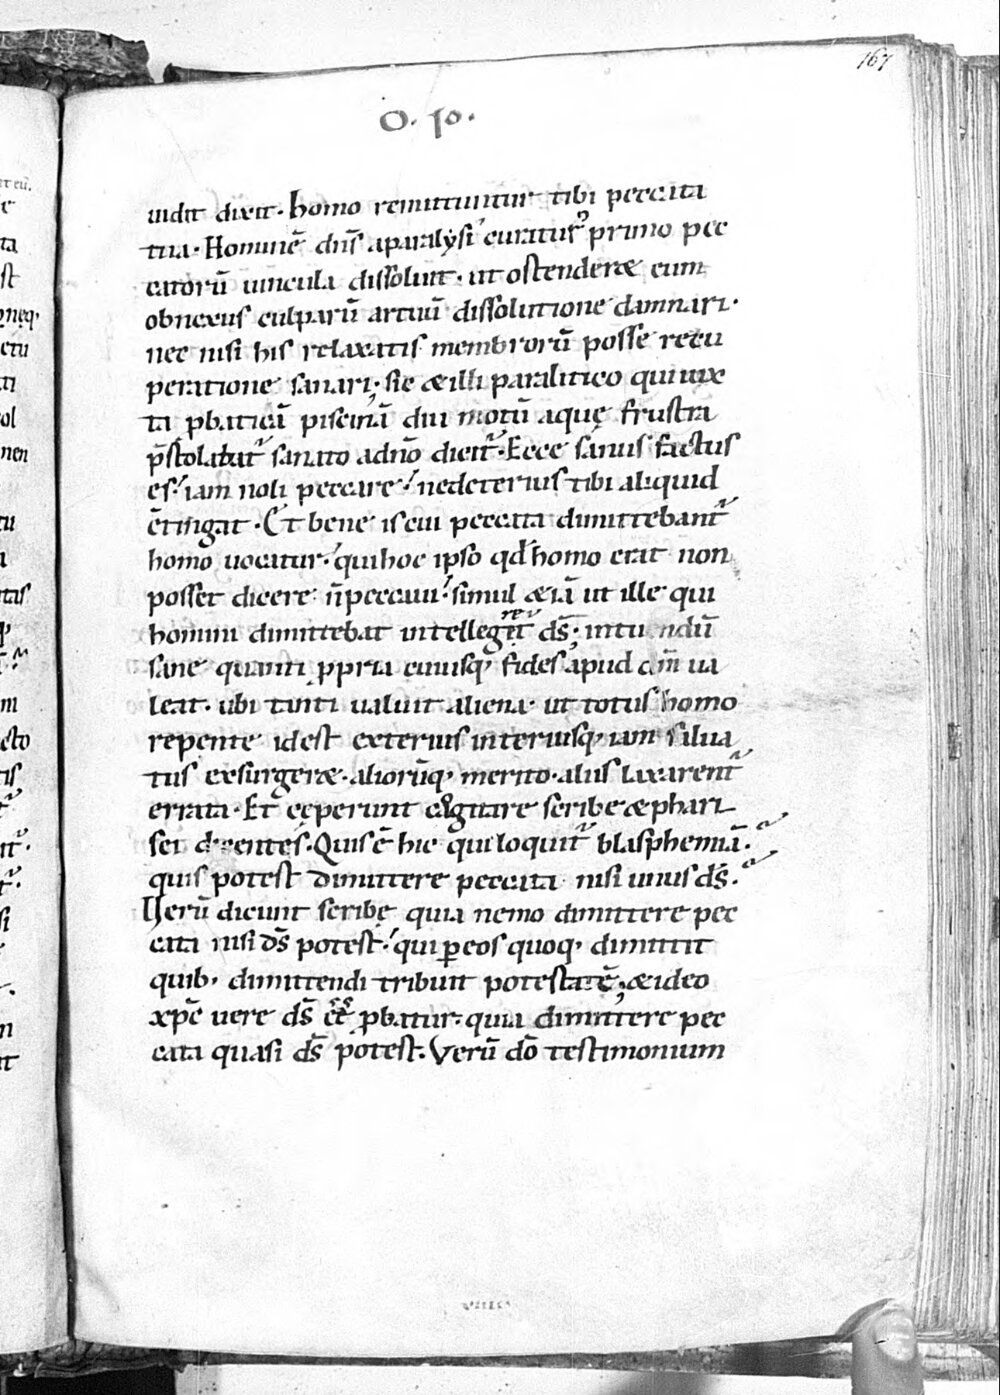 167
O. IO.
uidit dixit. homo remittuntur tibi peccata
tua. Hominē dn̄s aparalẏsi curaturꝰ primo pec
catorū uincula dissoluit. ut ostenderæ eum
obnexus culparū artuū dissolutione damnari.
nec nisi his relaxatis membrorū posse recu
peratione sanari; sic & illi paralitico qui iux
ta ꝓbaticā piscinā diu motū aquę frustra
p̄stolabat᷑ sanato adn̄o dicit᷑. Ecce sanus factus
es. iam noli peccare. nedeterius tibi aliquid
c̄tingat. Et bene iscui peccata dimittebant᷑
homo uocatur. quihoc ipso qd̄ homo erat non
posset dicere n̄ peccaui. simul & iā ut ille qui
homini dimittebat intellegeret᷑ ds̄; intuendū
sane quanti ꝓpria cuiusq; fides apud dm̄ ua
leat. ubi tanti ualuit aliena. ut totus homo
repente idest exterius interiusq; iam salua
tus exsurgeræ. aliorūq; merito. aliis laxarent᷑
errata. Et cęperunt cogitare scribe & phari
sei dicentes. Quis ē hic qui loquit᷑ blasphemiā.
quis potest dimittere peccata nisi unus ds̄.
Uerū dicunt scribę quia nemo dimittere pec
cata nisi ds̄ potest. qui ꝑeos quoq; dimittit
quib; dimittendi tribuit potestatē; & ideo
xp̄c uere ds̄ ēē ꝓbatur. quia dimittere pec
cata quasi ds̄ potest. Verū dō testimonium